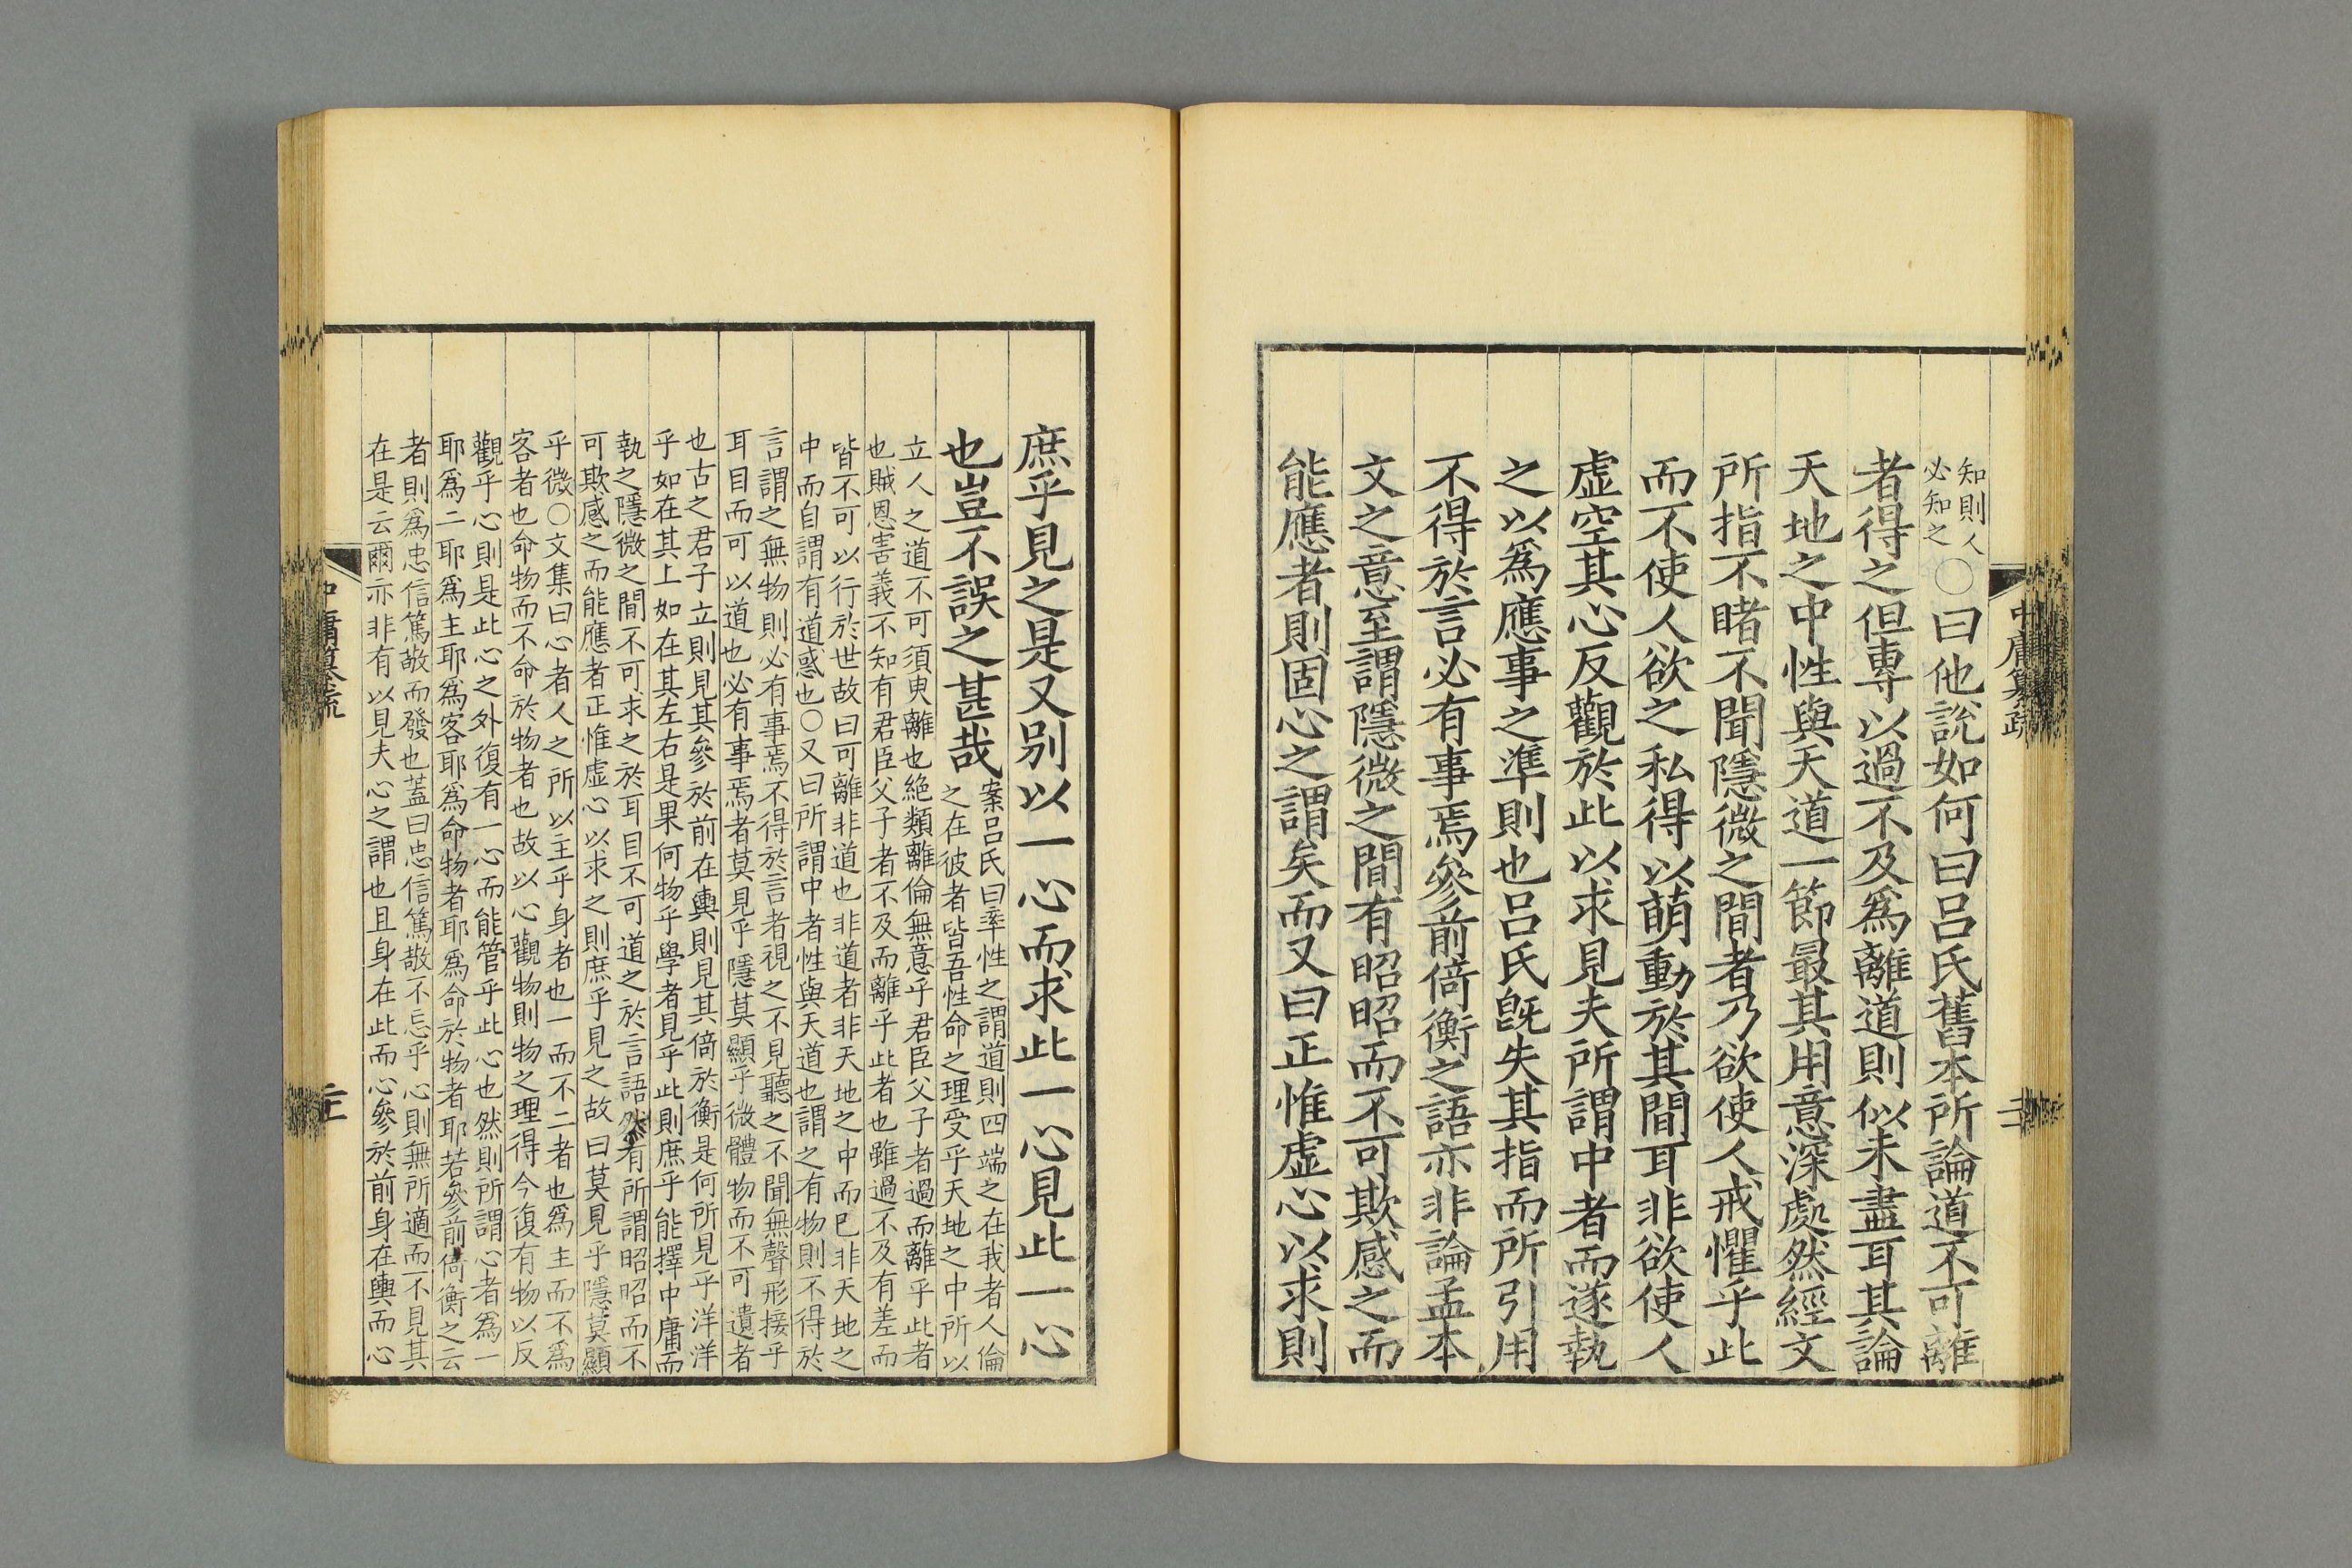 中庸纂疏
知則人
必知之
○曰他說如何曰呂氏舊本所論道不可離
者得之但專以過不及爲離道則似未盡耳其論
天地之中性與天道一節最其用意深處然經文
所指不睹不聞隱微之間者乃欲使人戒懼乎此
而不使人欲之私得以萌動於其間耳非欲使人
虛空其心反觀於此以求見夫所謂中者而遂執
之以爲應事之準則也呂氏旣失其指而所引用
不得於言必有事焉參前倚衡之語亦非論孟本
文之意至謂隱微之間有昭昭而不可欺感之而
能應者則固心之謂矣而又曰正惟虛心以求則
庶乎見之是又別以一心而求此一心見此一心
也豈不誤之甚哉
案呂氏曰率性之謂道則四端之在我者人倫
之在彼者皆吾性命之理受乎天地之中所以
立人之道不可須臾離也絕類離倫無意乎君臣父子者過而離乎此者
也賊恩害義不知有君臣父子者不及而離乎此者也雖過不及有差而
皆不可以行於世故曰可離非道也非道者非天地之中而已非天地之
中而自謂有道惑也○又曰所謂中者性與天道也謂之有物則不得於
言謂之無物則必有事焉不得於言者視之不見聽之不聞無聲形接乎
耳目而可以道也必有事焉者莫見乎隱莫顯乎微體物而不可遺者
也古之君子立則見其參於前在輿則見其倚於衡是何所見乎洋洋
乎如在其上如在其左右是果何物乎學者見乎此則庶乎能擇中庸而
執之隱微之間不可求之於耳目不可道之於言語然有所謂昭昭而不
可欺感之而能應者正惟虛心以求之則庶乎見之故曰莫見乎隱莫顯
乎微○文集曰心者人之所以主乎身者也一而不二者也爲主而不爲
客者也命物而不命於物者也故以心觀物則物之理得今復有物以反
觀乎心則是此心之外復有一心而能管乎此心也然則所謂心者爲一
耶爲二耶爲主耶爲客耶爲命物者耶爲命於物者耶若參前倚衡之云
者則爲忠信篤敬而發也蓋曰忠信篤敬不忘乎心則無所適而不見其
在是云爾亦非有以見夫心之謂也且身在此而心參於前身在輿而心